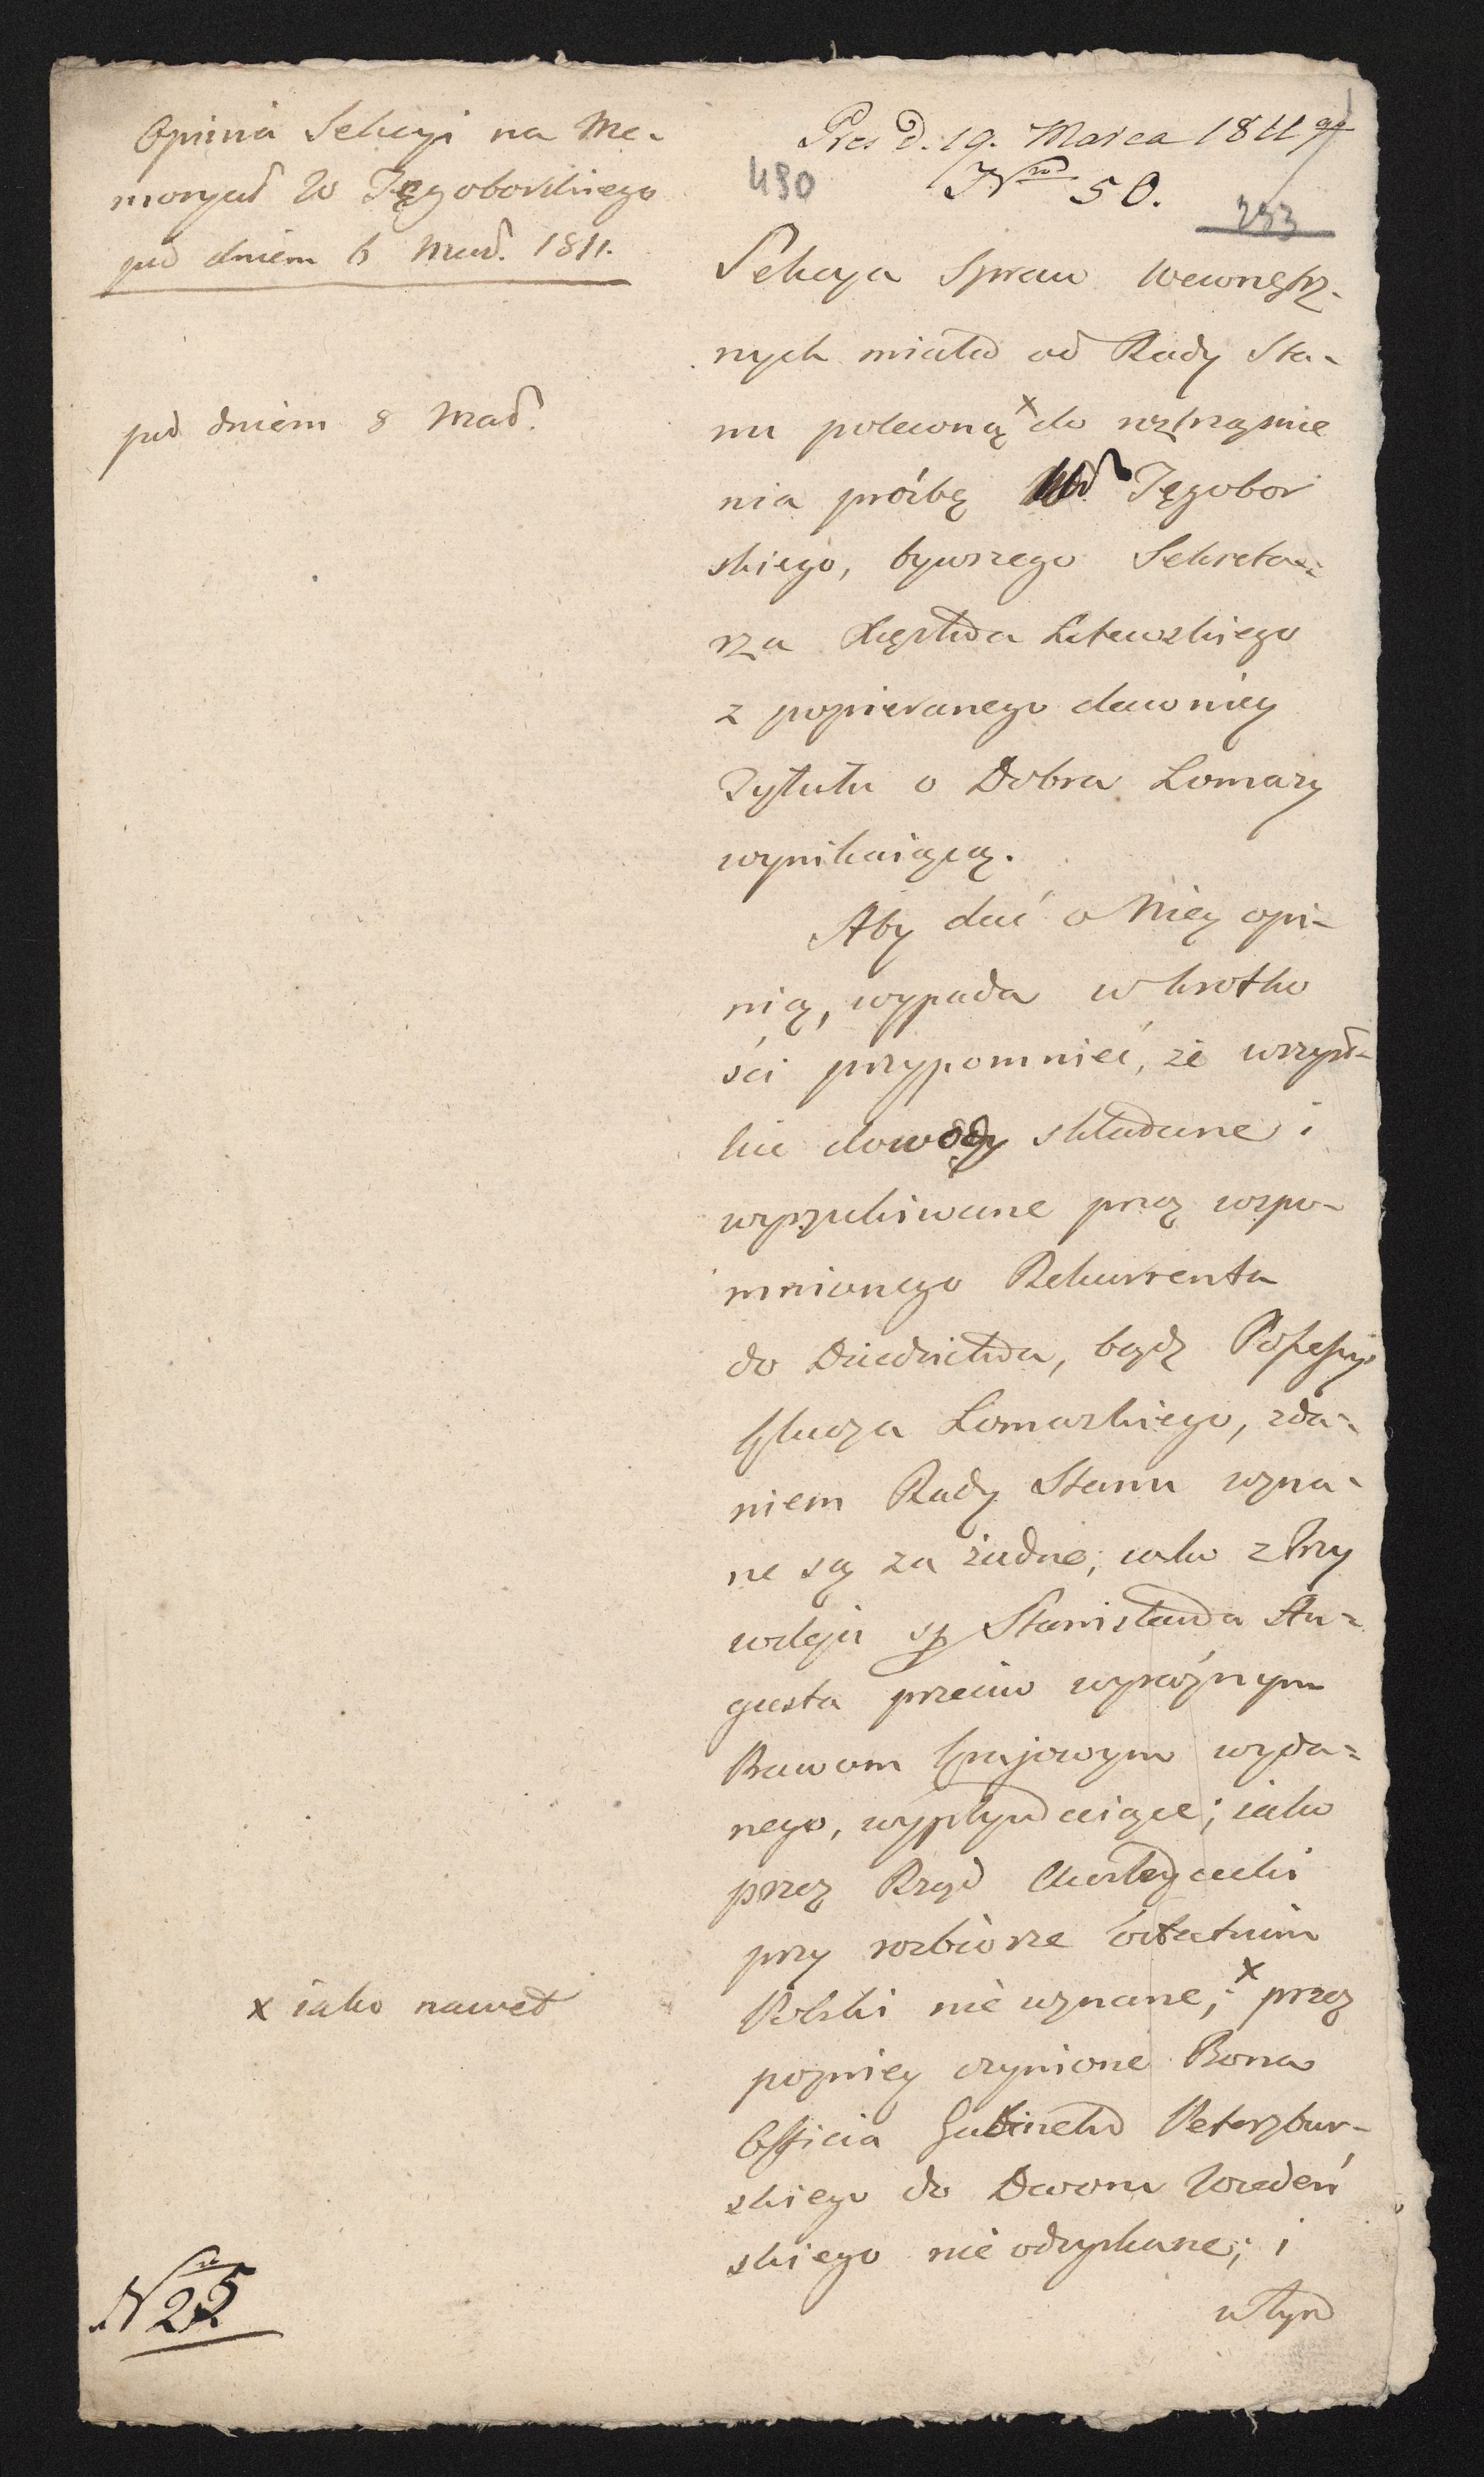 Opinia Sekcyi na Me-
moryał W Tęgoborskiego
pod dniem 6 Mar. 1811.
Pres d. 19. Marca 1811 go
Nro 50.
490
293
pod dniem 8 Mar.
Sekcya Spraw Wewnętrz-
nych miała od Rady Sta-
nu poleconą x do roztrząśnie
nia prośbę W Tęgobor
skiego, bywszego Sekreta-
rza Xięstwa Litewskiego
z popieranego dawniey
Tytułu o Dobra Łomazy
wynikaiącą.
Aby dać o Niey opi-
nią, wypada w krotko
ści przypomnieć, że wszyst-
kie dowody składane i
wyszukiwane przez wspo-
mnionego Rekurrenta
do Dziedzictwa, bądź Possessyi
Klucza Łomaskiego, zda-
niem Rady Stanu uzna-
ne są za żadne; jako z Przy
wileju śp Stanisława Au-
gusta przeciw wyraźnym
Prawom krajowym wyda-
nego, wypływaiące; iako
przez Rząd Austryacki
przy rozbiorze ostatnim
Polski nie uznane; x przez
x iako nawet
pozniey czynione Bona
Officia Gabinetu Petersbur-
skiego do Dworu Wiedeń
skiego nie odzyskane; i
w tym
Nro 25